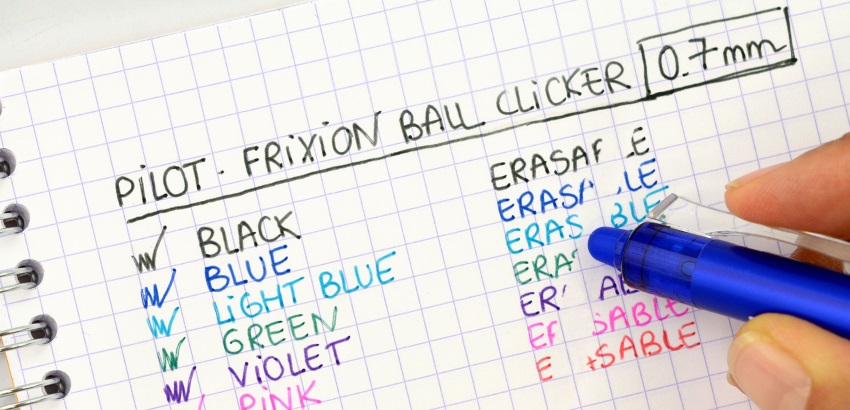 PiLOT - FRiXiON BALL CLiCKER 0.7mm
BLACK
BLUE
LiGHT BLUE
GREEN
ViOLET
PiNK
ERASA E
ERASA LE
ERAS BLE
ERA
ER A
E SABLE
E SABLE